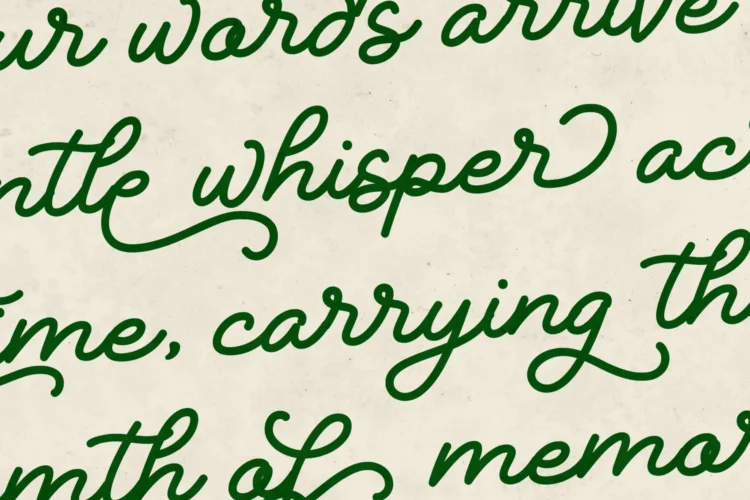 ur words arrive
ntle whisper ac
ime, carrying th
mth of memor